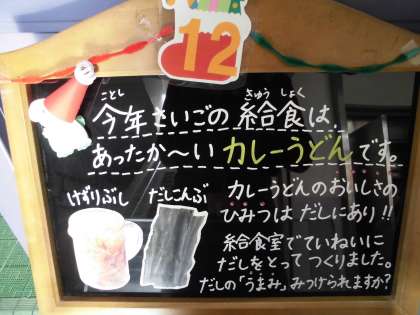 12
ことし きゅう しょく
今年さいごの給食は、
あったか〜いカレーうどんです。
けずりぶし だしこんぶ
カレーうどんのおいしさの
ひみつは だしにあり!!
給食室でていねいに
だしをとって つくりました。
だしの「うまみ」みつけられますか?